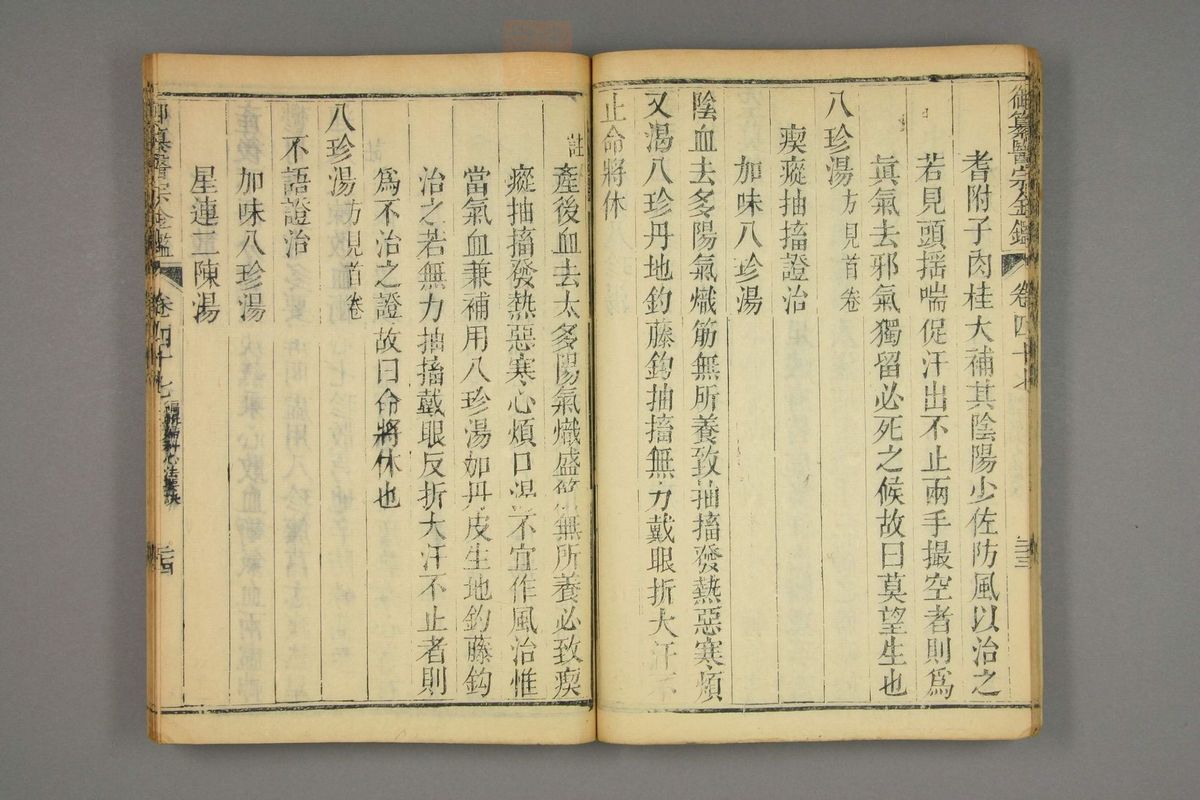 御纂醫宗金鑑 卷四十七 三三
耆附子肉桂大補其陰陽少佐防風以治之
若見頭揺喘促汗出不止兩手撮空者則爲
眞氣去邪氣獨留必死之候故曰莫望生也
八珍湯方見首卷
瘈瘲抽搐證治
加味八珍湯
陰血去多陽氣熾筋無所養致抽搐發熱惡寒煩
又渴八珍丹地鈎藤鈎抽搐無力戴眼折大汗不
止命將休
註 產後血去太多陽氣熾盛筋無所養必致瘈
瘲抽搐發熱惡寒心煩口渴不宜作風治惟
當氣血兼補用八珍湯加丹皮生地鈎藤鈎
治之若無力抽搐戴眼反折大汗不止者則
爲不治之證故曰命將休也
八珍湯方見首卷
不語證治
加味八珍湯
星連二陳湯
御纂醫宗金鑑 卷四十七 編輯婦科心法要訣 三四